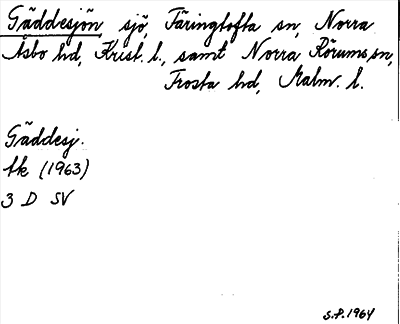 Gäddesjön sjö, Färingtofta sn, Norra
Åsbo hd, Krist. l., samt Norra Rörums sn,
Frosta hd, Malm. l.
Gäddesj.
tk (1963)
3 D SV
S.P. 1964